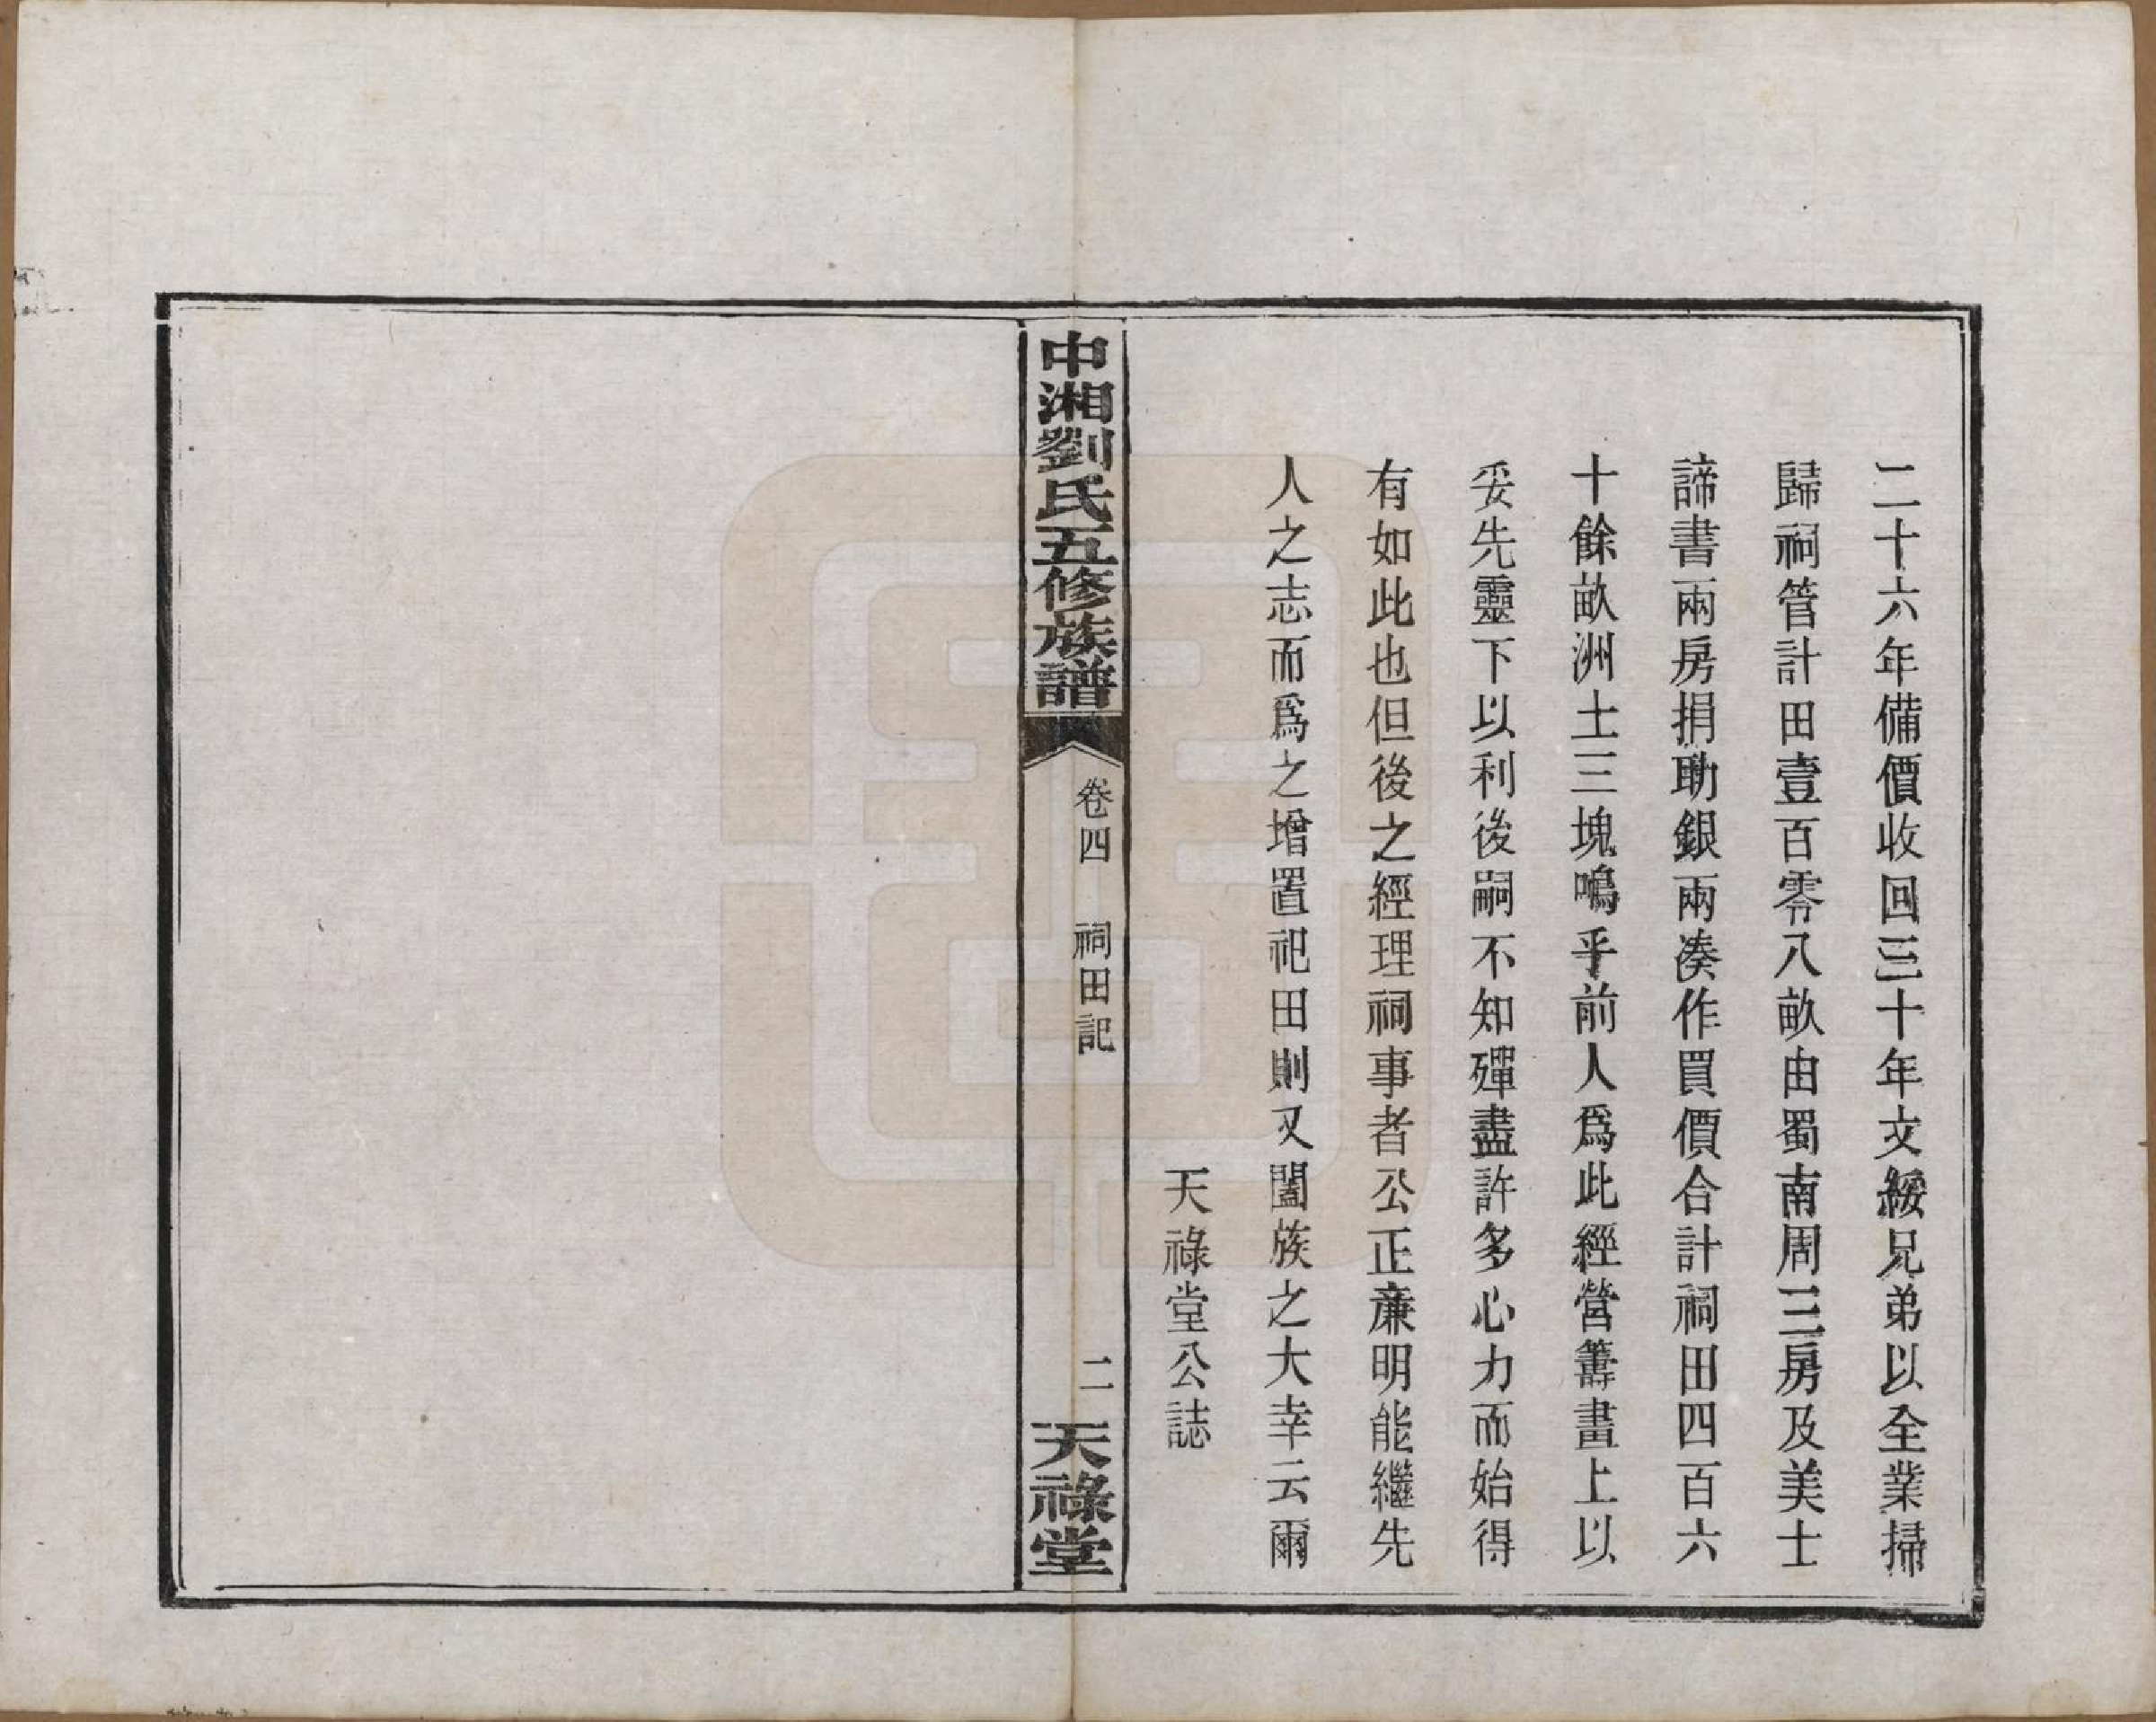 二十六年備價收回三十年文綬兄弟以全業掃
歸祠管計田壹百零八畝由蜀南周三房及美士
諦書兩房捐助銀兩湊作買價合計祠田四百六
十餘畝洲土三塊嗚乎前人爲此經營籌畫上以
妥先靈下以利後嗣不知殫盡許多心力而始得
有如此也但後之經理祠事者公正廉明能繼先
人之志而爲之增置祀田則又闔族之大幸云爾
天祿堂公誌
中湘劉氏五修族譜
卷四 祠田記
二
天祿堂